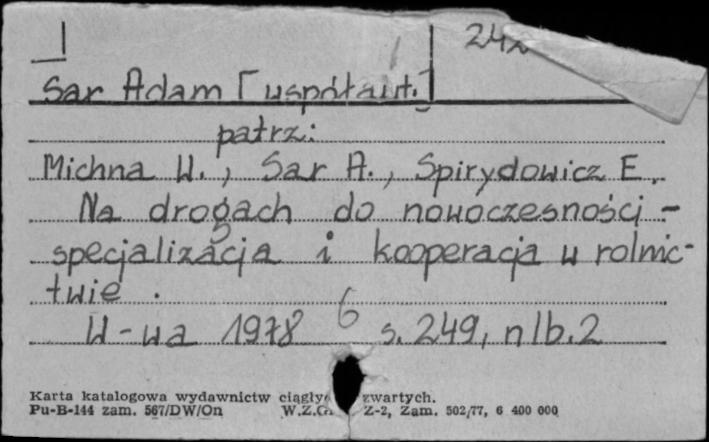 242
Sar Adam [współaut.]
patrz:
Michna W., Sar A., Spirydowicz E.
Na drogach do nowoczesności -
specjalizacja i kooperacja w rolnic-
twie.
W-wa 1978 6 s. 249, nlb. 2
Karta katalogowa wydawnictw zwartych.
Pu-B-144 zam. 567/DW/On Z-2, Zam. 502/77, 6 400 000